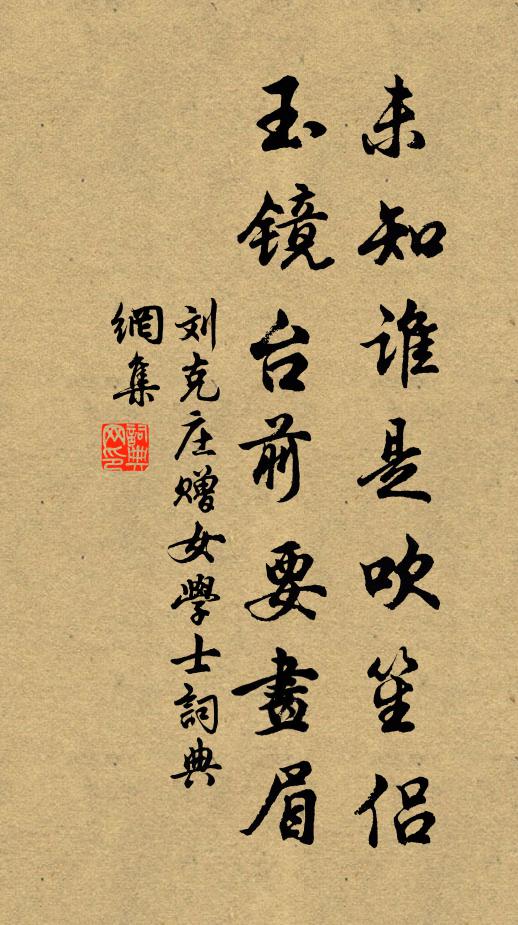 未知谁是吹笙侣
玉镜台前要畫眉
刘克庄赠女學士詞典
網集
詞典
网印